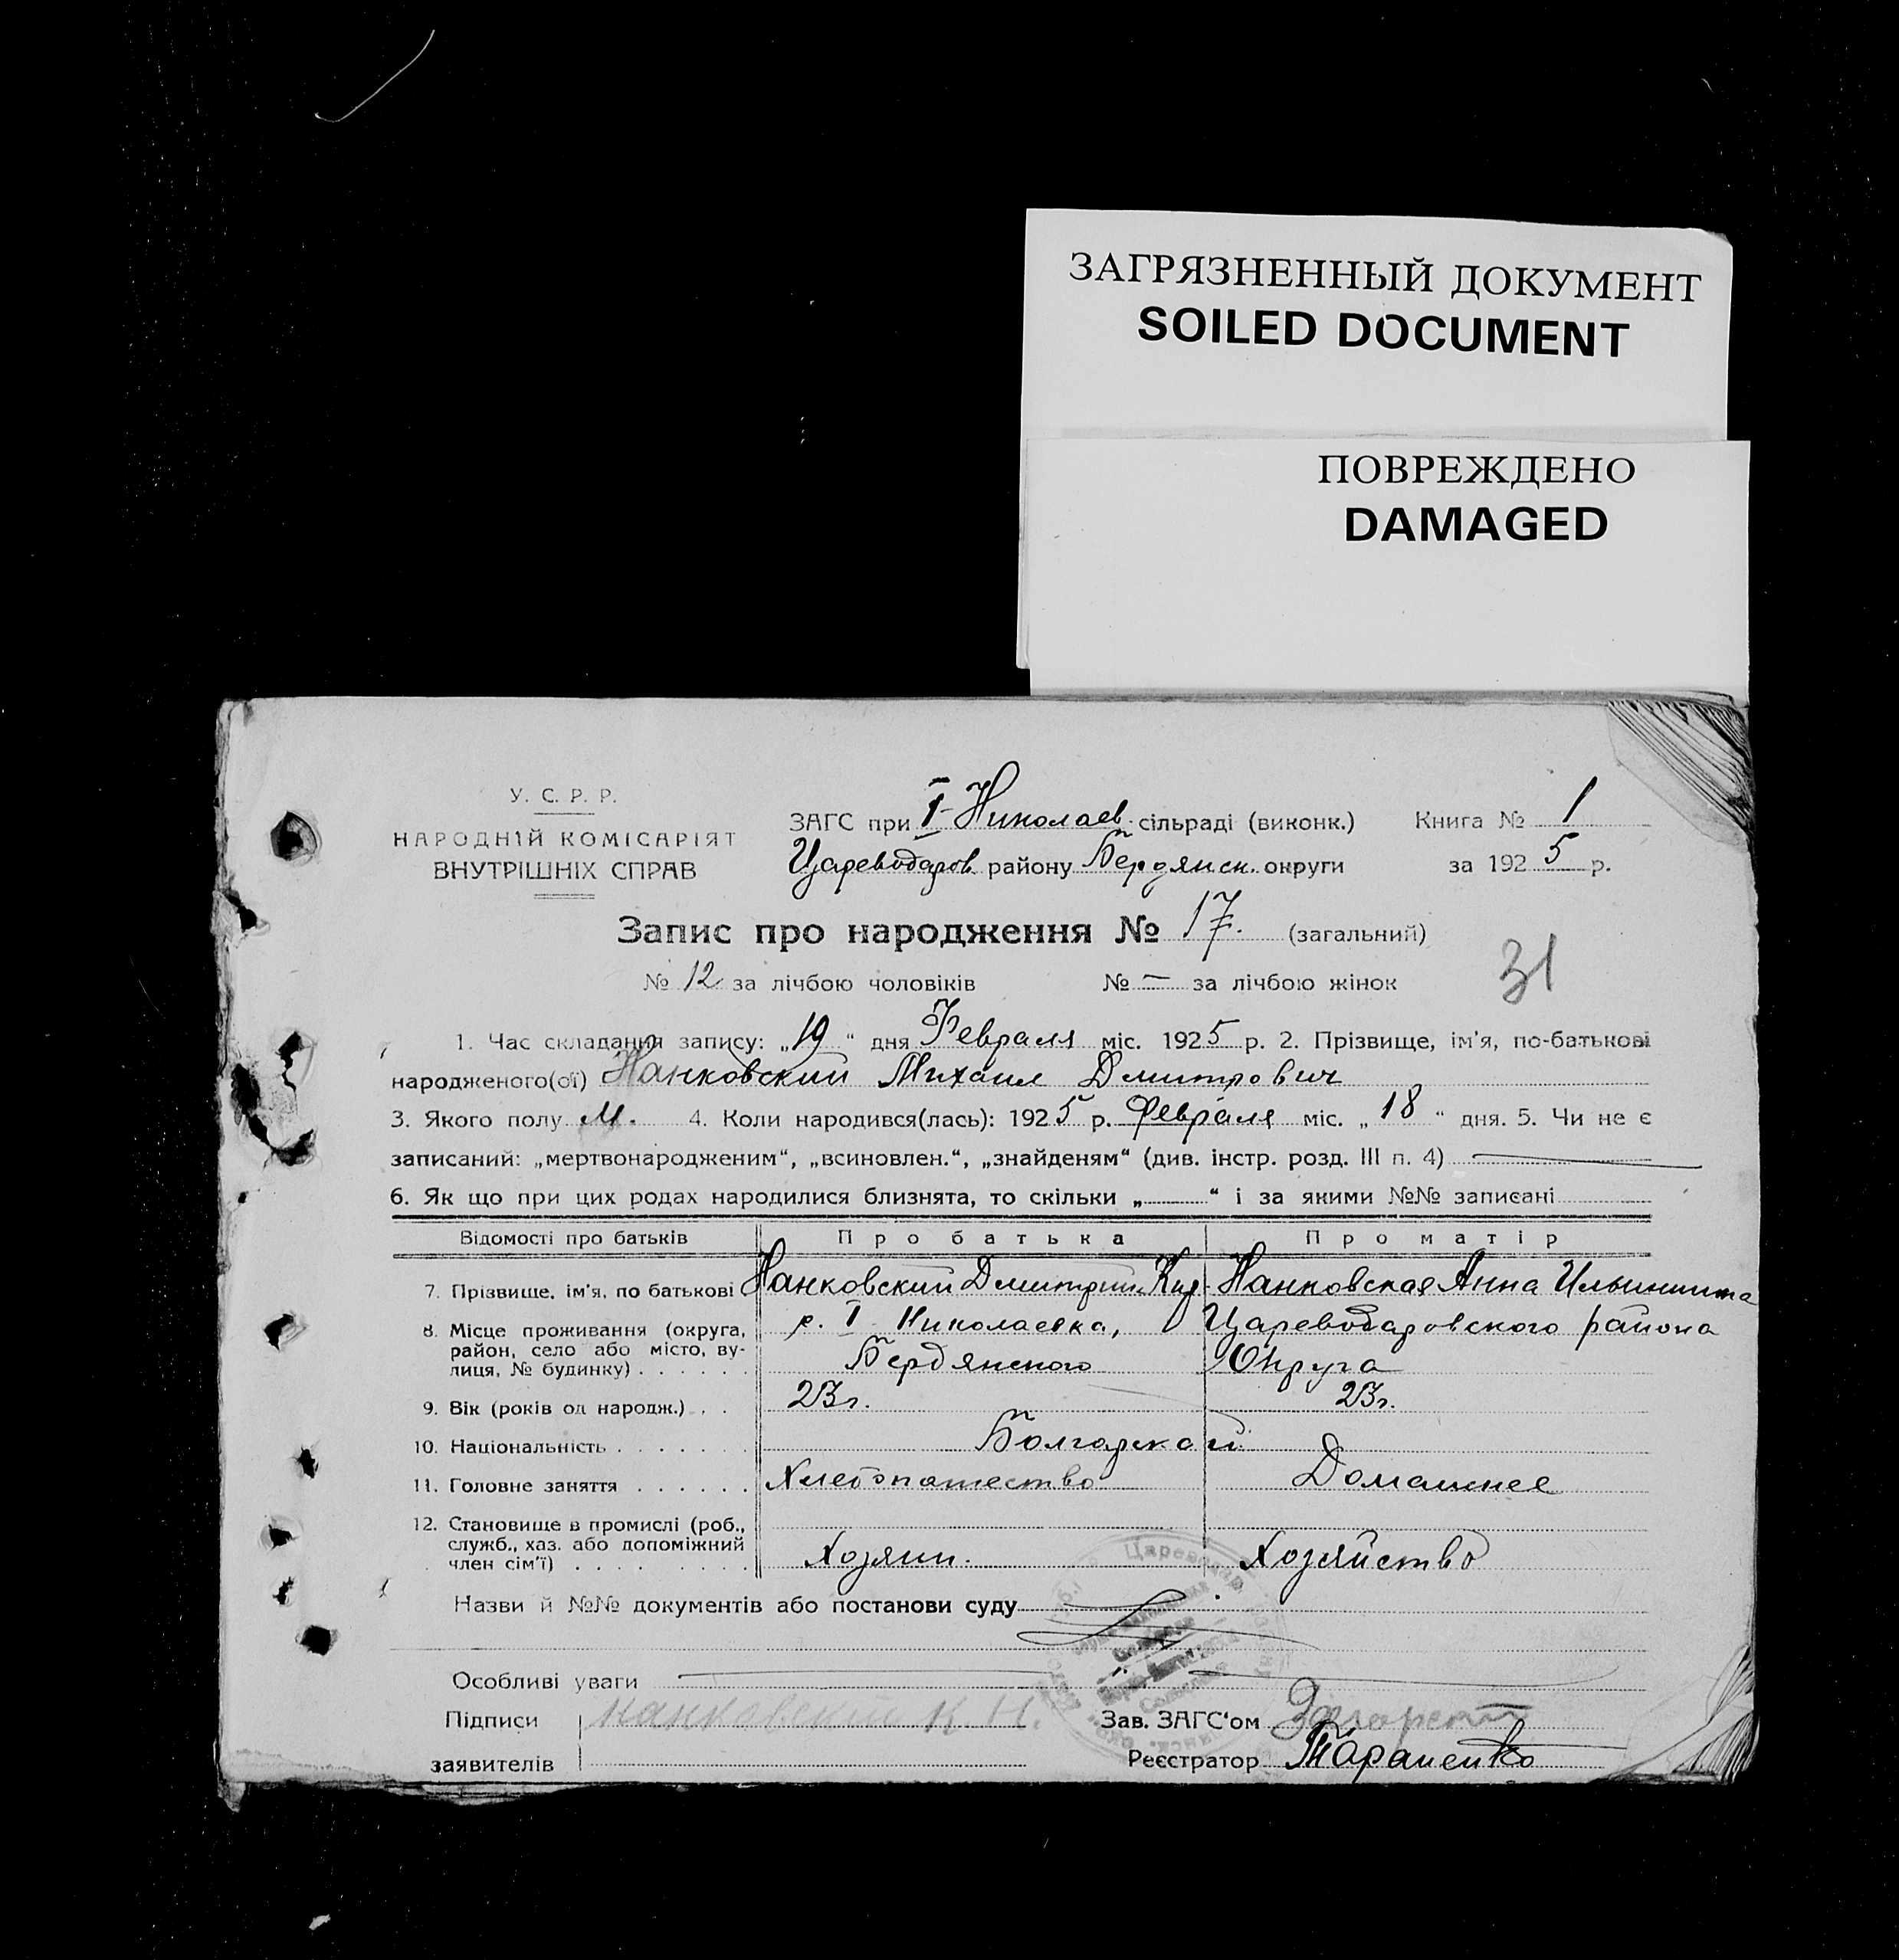 ЗАГРЯЗНЕННЫЙ ДОКУМЕНТ
SOILED DOCUMENT
ПОВРЕЖДЕНО
DAMAGED
У. С. Р. Р.
НАРОДНІЙ КОМІСАРІЯТ
ВНУТРІШНІХ СПРАВ
ЗАГС при I-Николаев. сільраді (виконк.) Книга № 1
Цареводаров. району Бердянск. округи за 1925 р.
Запис про народження № 17. (загальний)
№ 12 за лічбою чоловіків № — за лічбою жінок
31
1. Час складання запису: „19“ дня Февраля міс. 1925 р. 2. Прізвище, ім'я, по-батькові
народженого(ої) Нанковский Михаил Дмитрович
3. Якого полу м. 4. Коли народився(лась): 1925 р. Февраля міс. „18“ дня. 5. Чи не є
записаний: „мертвонародженим“, „всиновлен.“, „знайденям“ (див. інстр. розд. III п. 4)
6. Як що при цих родах народилися близнята, то скільки „ “ і за якими №№ записані
Відомості про батьків Про батька Про матір
7. Прізвище, ім'я, по батькові Нанковский Дмитрий Кир. Нанковская Анна Ильинишна
8. Місце проживання (округа, с. I Николаевка, Цареводаровского района
район, село або місто, ву-
лиця, № будинку) Бердянского Округа
9. Вік (років од народж.) 23 г. 23 г.
10. Національність Болгарской
11. Головне заняття Хлебопашество Домашнее
12. Становище в промислі (роб.,
служб., хаз. або допоміжний
член сім'ї) Хозяин. Хозяйство
Назви й №№ документів або постанови суду
Особливі уваги
Підписи Нанковский К. И. Зав. ЗАГС'ом
заявителів Реєстратор Тараненко